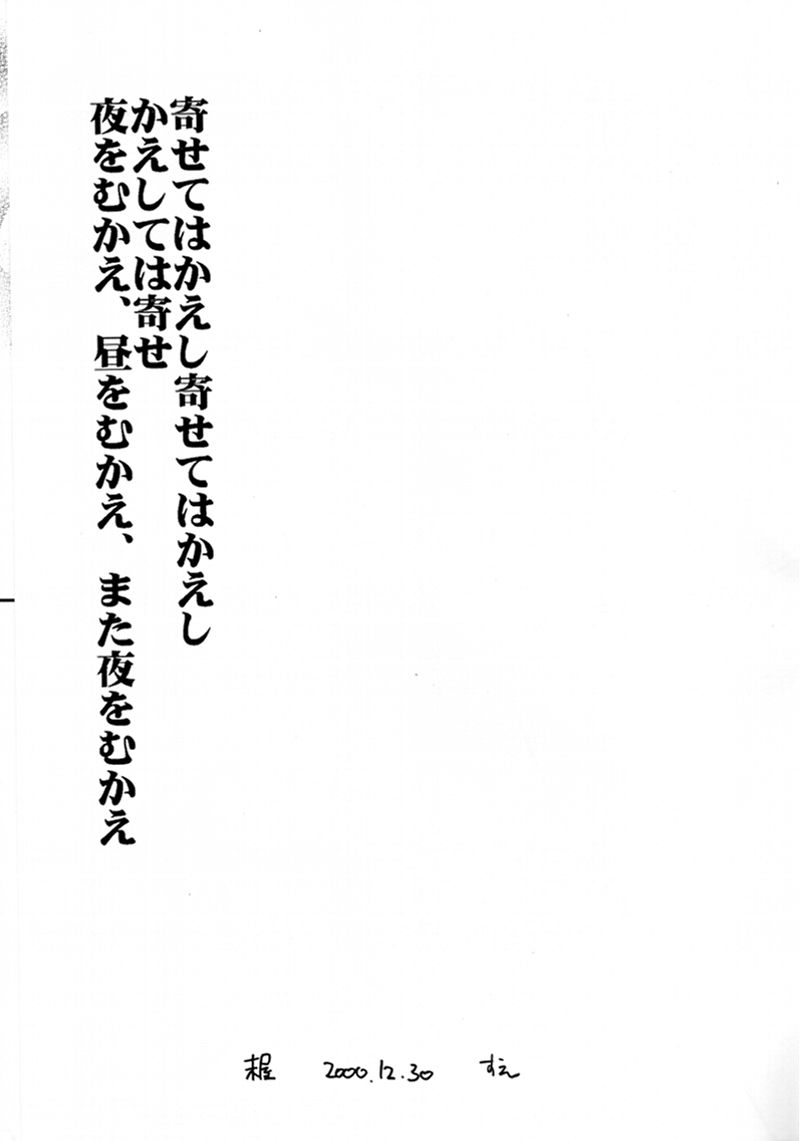 寄せてはかえし寄せてはかえし
かえしては寄せ
夜をむかえ、昼をむかえ、また夜をむかえ
2000.12.30 すえ